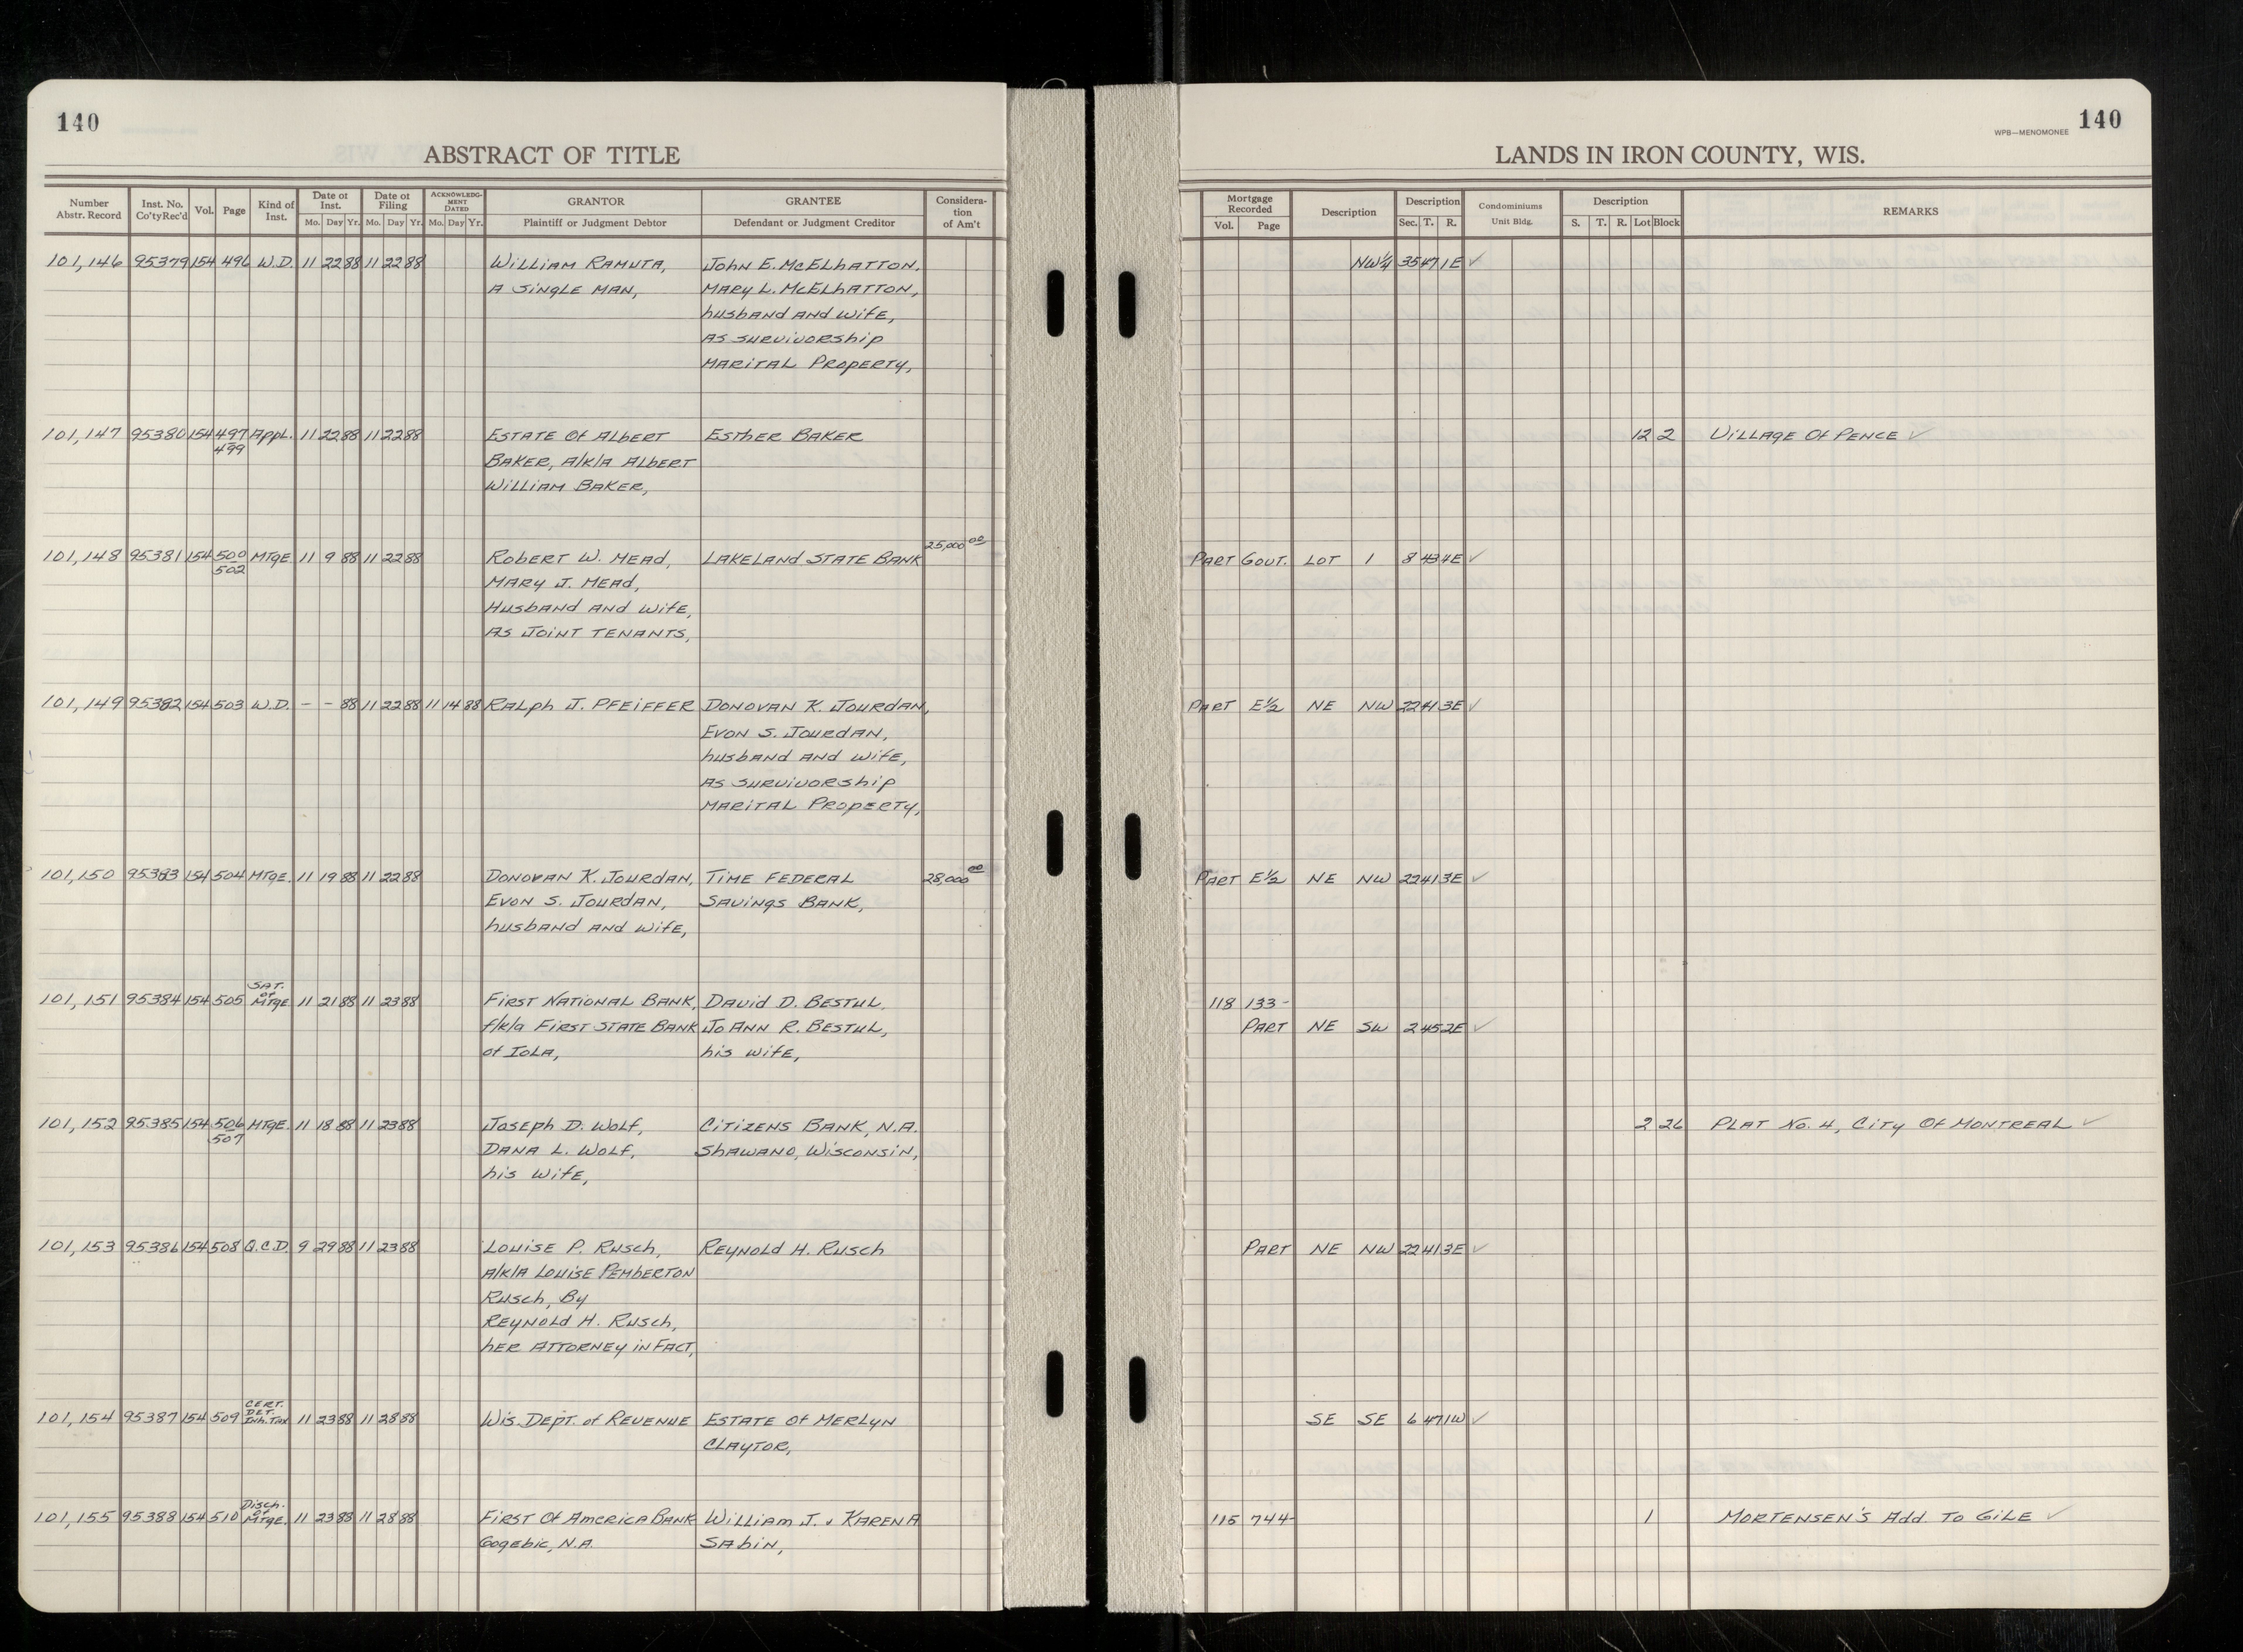 140
ABSTRACT OF TITLE
Number Abstr. Record | Inst. No. Co'ty Rec'd | Vol. | Page | Kind of Inst. | Date of Inst. Mo. Day Yr. | Date of Filing Mo. Day Yr. | ACKNOWLEDGMENT DATED Mo. Day Yr. | GRANTOR Plaintiff or Judgment Debtor | GRANTEE Defendant or Judgment Creditor | Consideration of Am't
101,146 95379 154 496 W.D. 11 22 88 11 22 88 William Ramuta, John E. McElhatton,
A Single Man, Mary L. McElhatton,
husband and wife,
As survivorship
Marital Property,
101,147 95380 154 497 Appl. 11 22 88 11 22 88 Estate Of Albert Esther Baker
499 Baker, a/k/a Albert
William Baker,
101,148 95381 154 500 Mtge 11 9 88 11 22 88 Robert W. Mead, Lakeland State Bank 25,000 00
502 Mary J. Mead,
Husband and Wife,
As Joint Tenants,
101,149 95382 154 503 W.D. - - 88 11 22 88 11 14 88 Ralph J. Pfeiffer Donovan K. Jourdan,
Evon S. Jourdan,
husband and wife,
As survivorship
Marital Property,
101,150 95383 154 504 Mtge. 11 19 88 11 22 88 Donovan K. Jourdan, Time Federal 28,000 00
Evon S. Jourdan, Savings Bank,
husband and wife,
Sat. of
101,151 95384 154 505 Mtge 11 21 88 11 23 88 First National Bank, David D. Bestul,
f/k/a First State Bank JoAnn R. Bestul,
of Iola, his wife,
101,152 95385 154 506 Mtge. 11 18 88 11 23 88 Joseph D. Wolf, Citizens Bank, N.A.
507 Dana L. Wolf, Shawano, Wisconsin,
his wife,
101,153 95386 154 508 Q.C.D. 9 29 88 11 23 88 Louise P. Rusch, Reynold H. Rusch
a/k/a Louise Pemberton
Rusch, By
Reynold H. Rusch,
her Attorney in Fact,
Cert. Det.
101,154 95387 154 509 Inh. Tax 11 23 88 11 28 88 Wis. Dept. of Revenue Estate Of Merlyn
Claytor,
Disch. of
101,155 95388 154 510 Mtge. 11 23 88 11 28 88 First Of America Bank William J. & Karen A
Gogebic, N.A. Sabin,
WPB—MENOMONEE 140
LANDS IN IRON COUNTY, WIS.
Mortgage Recorded Vol. Page | Description | Description Sec. T. R. | Condominiums Unit Bldg. | Description S. T. R. Lot Block | REMARKS
NW¼ 35 47 1E ✓
12 2 Village Of Pence ✓
Part Gout. Lot 1 8 43 4E ✓
Part E½ NE NW 22 41 3E ✓
Part E½ NE NW 22 41 3E ✓
118 133 -
Part NE SW 2 45 2E ✓
2 26 Plat No. 4, City Of Montreal ✓
Part NE NW 22 41 3E ✓
SE SE 6 47 1W ✓
115 744- 1 Mortensen's Add To Gile ✓